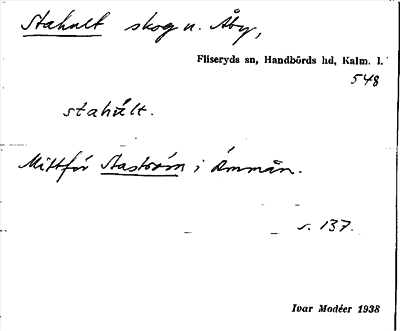 Stahult skog u. Åby,
Fliseryds sn, Handbörds hd, Kalm. l.
548
stahúlt.
Mittför Staström i Ämmån.
s. 137.
Ivar Modéer 1938